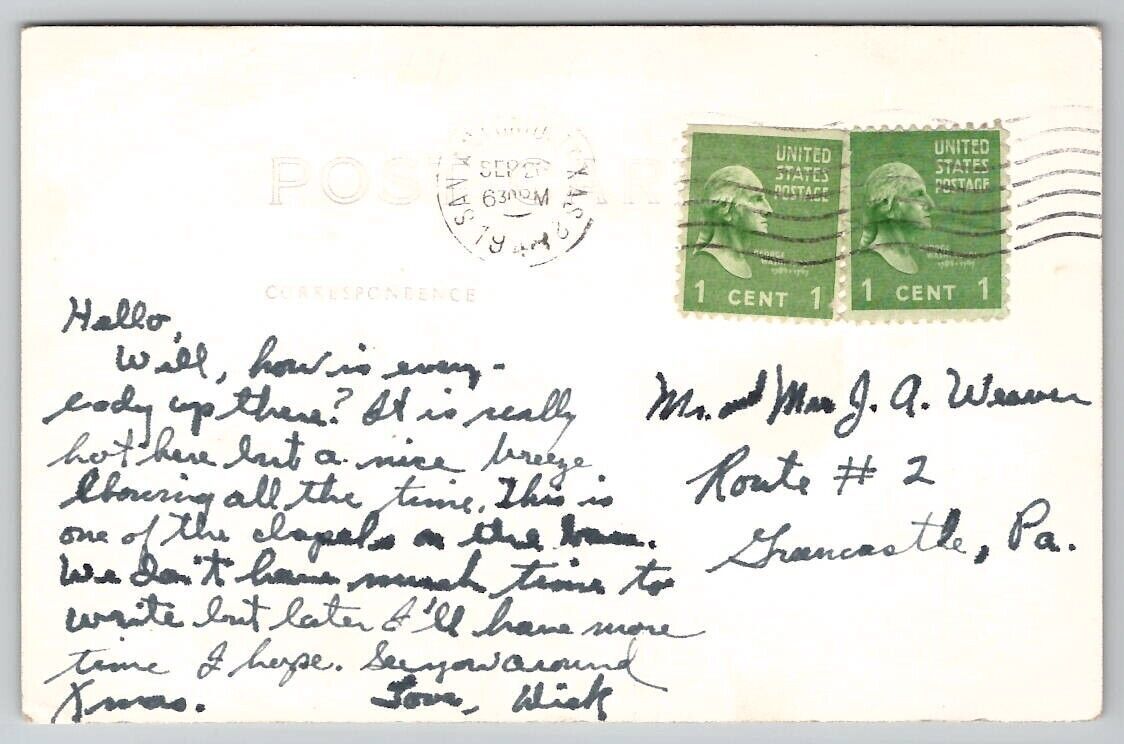 POST CARD
SAN ANTONIO TEXAS
SEP 2
630 PM
194
UNITED STATES POSTAGE
1 CENT 1
UNITED STATES POSTAGE
1 CENT 1
CORRESPONDENCE
Hello,
Well, how is every-
body up there? It is really
hot here but a nice breeze
blowing all the time. This is
one of the chapels on the
We don't have much time to
write but later I'll have more
time I hope. See you around
Xmas. Love, Dick
Mr. and Mrs J. A. Weaver
Route # 2
Greencastle, Pa.